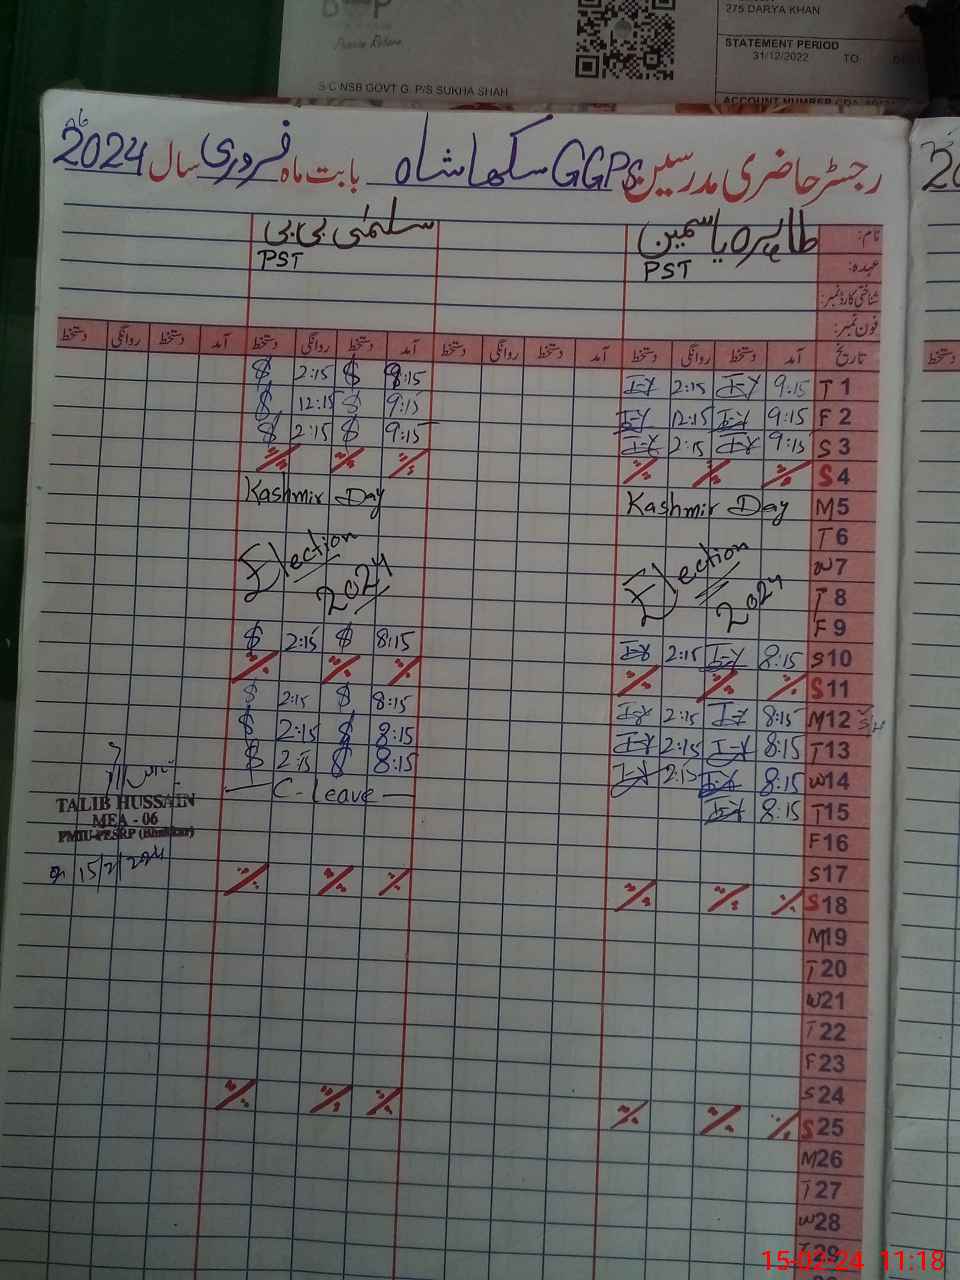 275 DARYA KHAN
STATEMENT PERIOD
31/12/2022 TO
S C NSB GOVT G. P/S SUKHA SHAH
ACCOUNT NUMBER
رجسٹر حاضری مدرسین GGPS سکھا شاہ بابت ماہ فروری سال 2024
نام: طاہرہ یاسمین سلمیٰ بی بی
عہدہ: PST PST
شناختی کارڈ نمبر:
فون نمبر:
تاریخ آمد دستخط روانگی دستخط آمد دستخط روانگی دستخط آمد دستخط روانگی دستخط آمد دستخط روانگی دستخط
T 1 9:15 2:15 8:15 2:15
F 2 9:15 12:15 9:15 12:15
S 3 9:15 2:15 9:15 2:15
S 4
M 5 Kashmir Day Kashmir Day
T 6
W 7 Election Election
T 8 2024 2024
F 9
S 10 8:15 2:15 8:15 2:15
S 11
M 12 8:15 2:15 8:15 2:15
T 13 8:15 2:15 8:15 2:15
W 14 8:15 2:15 8:15 2:15
T 15 8:15 C-Leave
F 16
S 17
S 18
M 19
T 20
W 21
T 22
F 23
S 24
S 25
M 26
T 27
W 28
T 29
TALIB HUSSAIN
MEA - 06
PMIU-PESRP (Bhakkar)
15/2/2024
15-02-24 11:18